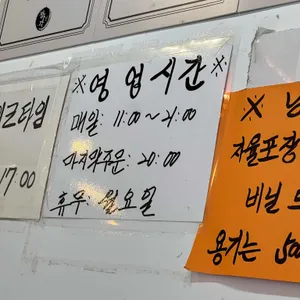 크타임
17:00
※영업시간※
매일: 11:00~21:00
마지막주문: 20:00
휴무: 월요일
※
자율포장
비닐
용기는 500